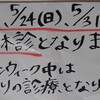 5/24(日)、5/31
休診となりま
ウィーク中は
りの診療となり